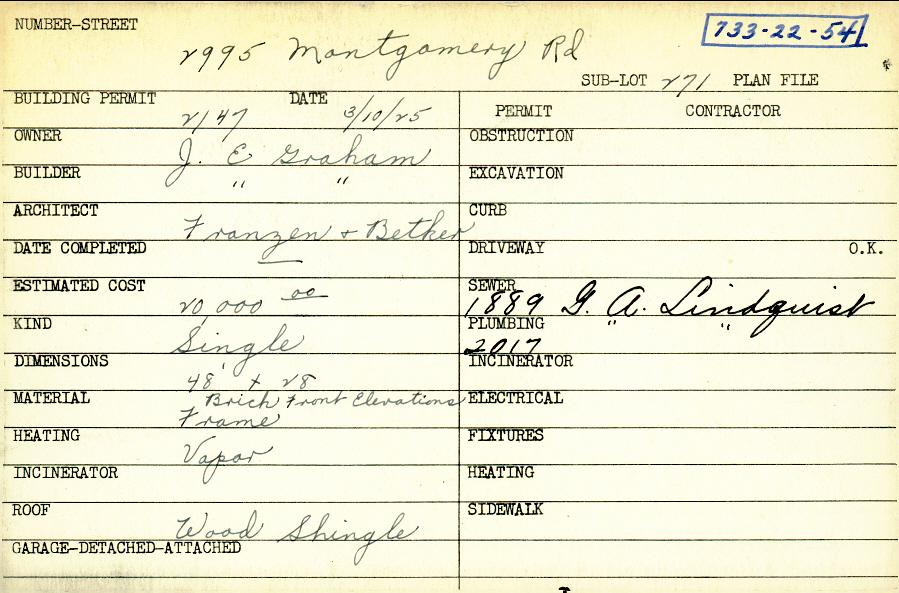 NUMBER-STREET
2995 Montgomery Rd
733-22-54
SUB-LOT 271 PLAN FILE
BUILDING PERMIT 2147 DATE 3/10/25
OWNER J. E Graham
BUILDER " "
ARCHITECT Franzen + Betker
DATE COMPLETED —
ESTIMATED COST 20,000 00
KIND Single
DIMENSIONS 48' x 28
MATERIAL Brick Front Elevations
Frame
HEATING Vapor
INCINERATOR
ROOF Wood Shingle
GARAGE-DETACHED-ATTACHED
PERMIT CONTRACTOR
OBSTRUCTION
EXCAVATION
CURB
DRIVEWAY O.K.
SEWER
1889 G. A. Lindquist
PLUMBING " "
2017
INCINERATOR
ELECTRICAL
FIXTURES
HEATING
SIDEWALK